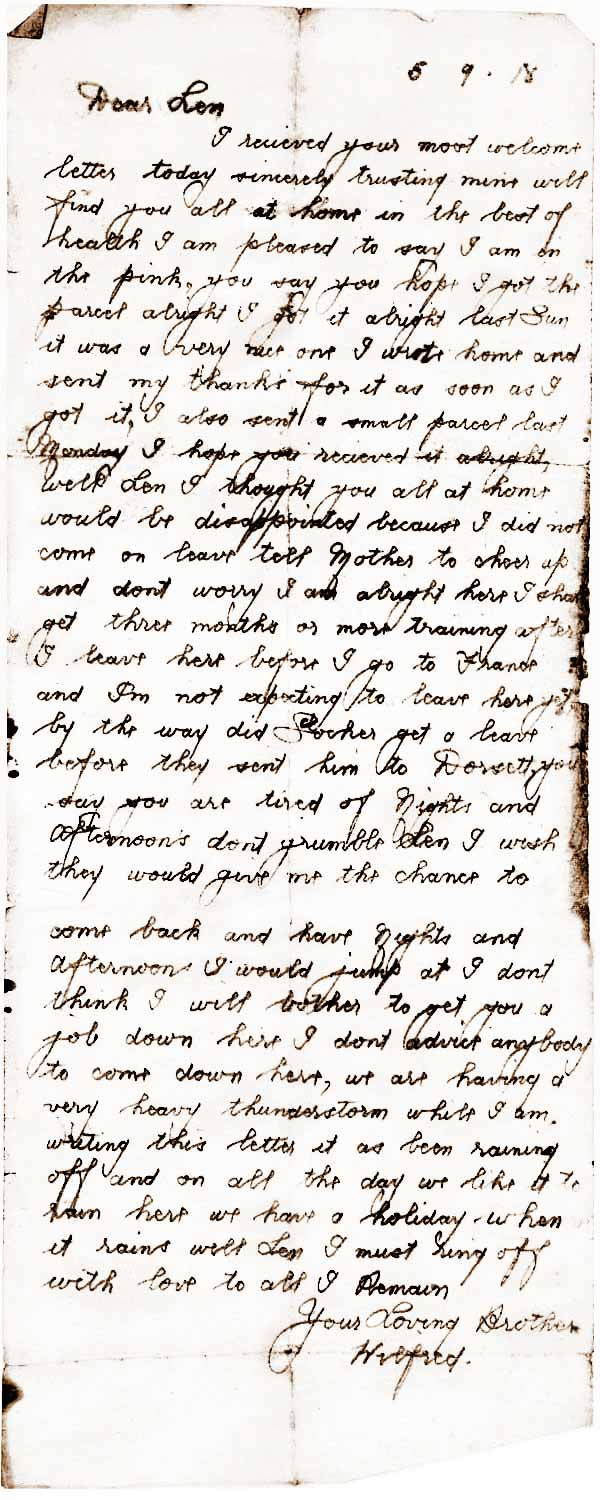 5 9 . 18
Dear Len
I recieved your most welcome
letter today sincerely trusting mine will
find you all at home in the best of
health I am pleased to say I am in
the pink, you say you hope I got the
parcel alright I got it alright last Sun
it was a very nice one I wrote home and
sent my thanks for it as soon as I
got it, I also sent a small parcel last
Monday I hope you recieved it alright,
well Len I thought you all at home
would be disappointed because I did not
come on leave tell Mother to cheer up
and dont worry I am alright here I shall
get three months or more training after
I leave here before I go to France
and I'm not expecting to leave here yet
by the way did get a leave
before they sent him to Dorset, you
say you are tired of Nights and
Afternoons dont grumble Len I wish
they would give me the chance to
come back and have Nights and
Afternoons I would jump at I dont
think I will bother to get you a
job down here I dont advice anybody
to come down here, we are having a
very heavy thunderstorm while I am.
writing this letter it as been raining
off and on all the day we like it to
rain here we have a holiday when
it rains well Len I must ring off
with love to all I Remain
Your Loving Brother
Wilfred.